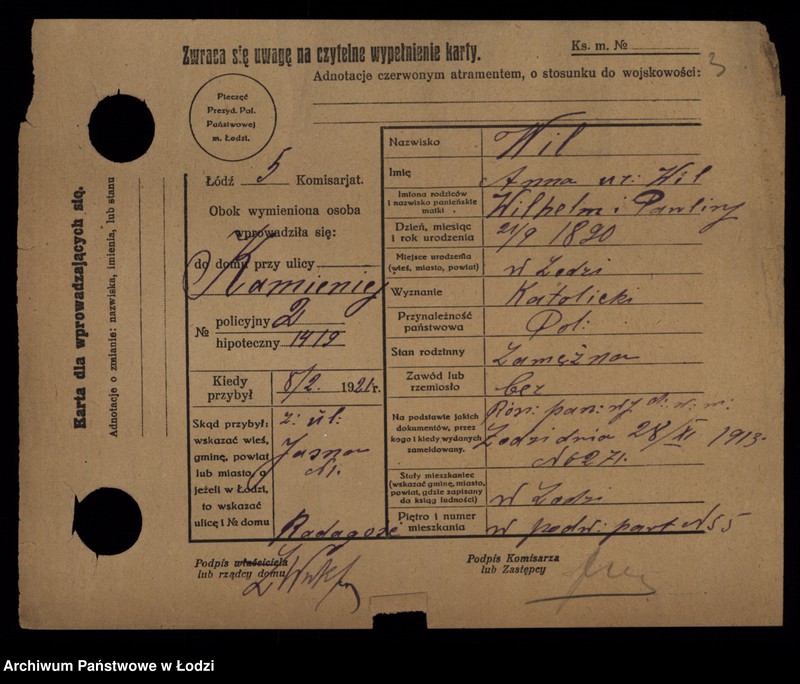 Zwraca się uwagę na czytelne wypełnienie karty.
Ks. m. №
3
Adnotacje czerwonym atramentem, o stosunku do wojskowości:
Pieczęć
Prezyd. Pol.
Państwowej
m. Łodzi.
Karta dla wprowadzających się.
Adnotacje o zmianie: nazwiska, imienia, lub stanu
Łódź 5 Komisarjat.
Obok wymieniona osoba
wprowadziła się:
do domu przy ulicy
Kamieniej
№ policyjny 2
hipoteczny 1419
Kiedy
przybył 8/2. 1921 r.
Skąd przybył:
wskazać wieś,
gminę, powiat
lub miasto, a
jeżeli w Łodzi,
to wskazać
ulicę i № domu
z: ul:
Jasna
Radagosz
Nazwisko Wil
Imię Anna ur: Wil
Imiona rodziców
i nazwisko panieńskie
matki
Wilhelm i Pauliny
Dzień, miesiąc
i rok urodzenia
21/9 1890
Miejsce urodzenia
(wieś, miasto, powiat)
w Łodzi
Wyznanie Katolicki
Przynależność
państwowa
Pol:
Stan rodzinny Zamężna
Zawód lub
rzemiosło
bez
Na podstawie jakich
dokumentów, przez
kogo i kiedy wydanych
zameldowany.
pan:
Łodzi dnia 28/XI 1913.
№ 6271.
Stały mieszkaniec
(wskazać gminę, miasto,
powiat, gdzie zapisany
do ksiąg ludności)
w Łodzi
Piętro i numer
mieszkania
w podw: part № 55
Podpis właściciela
lub rządcy domu
Podpis Komisarza
lub Zastępcy
Archiwum Państwowe w Łodzi